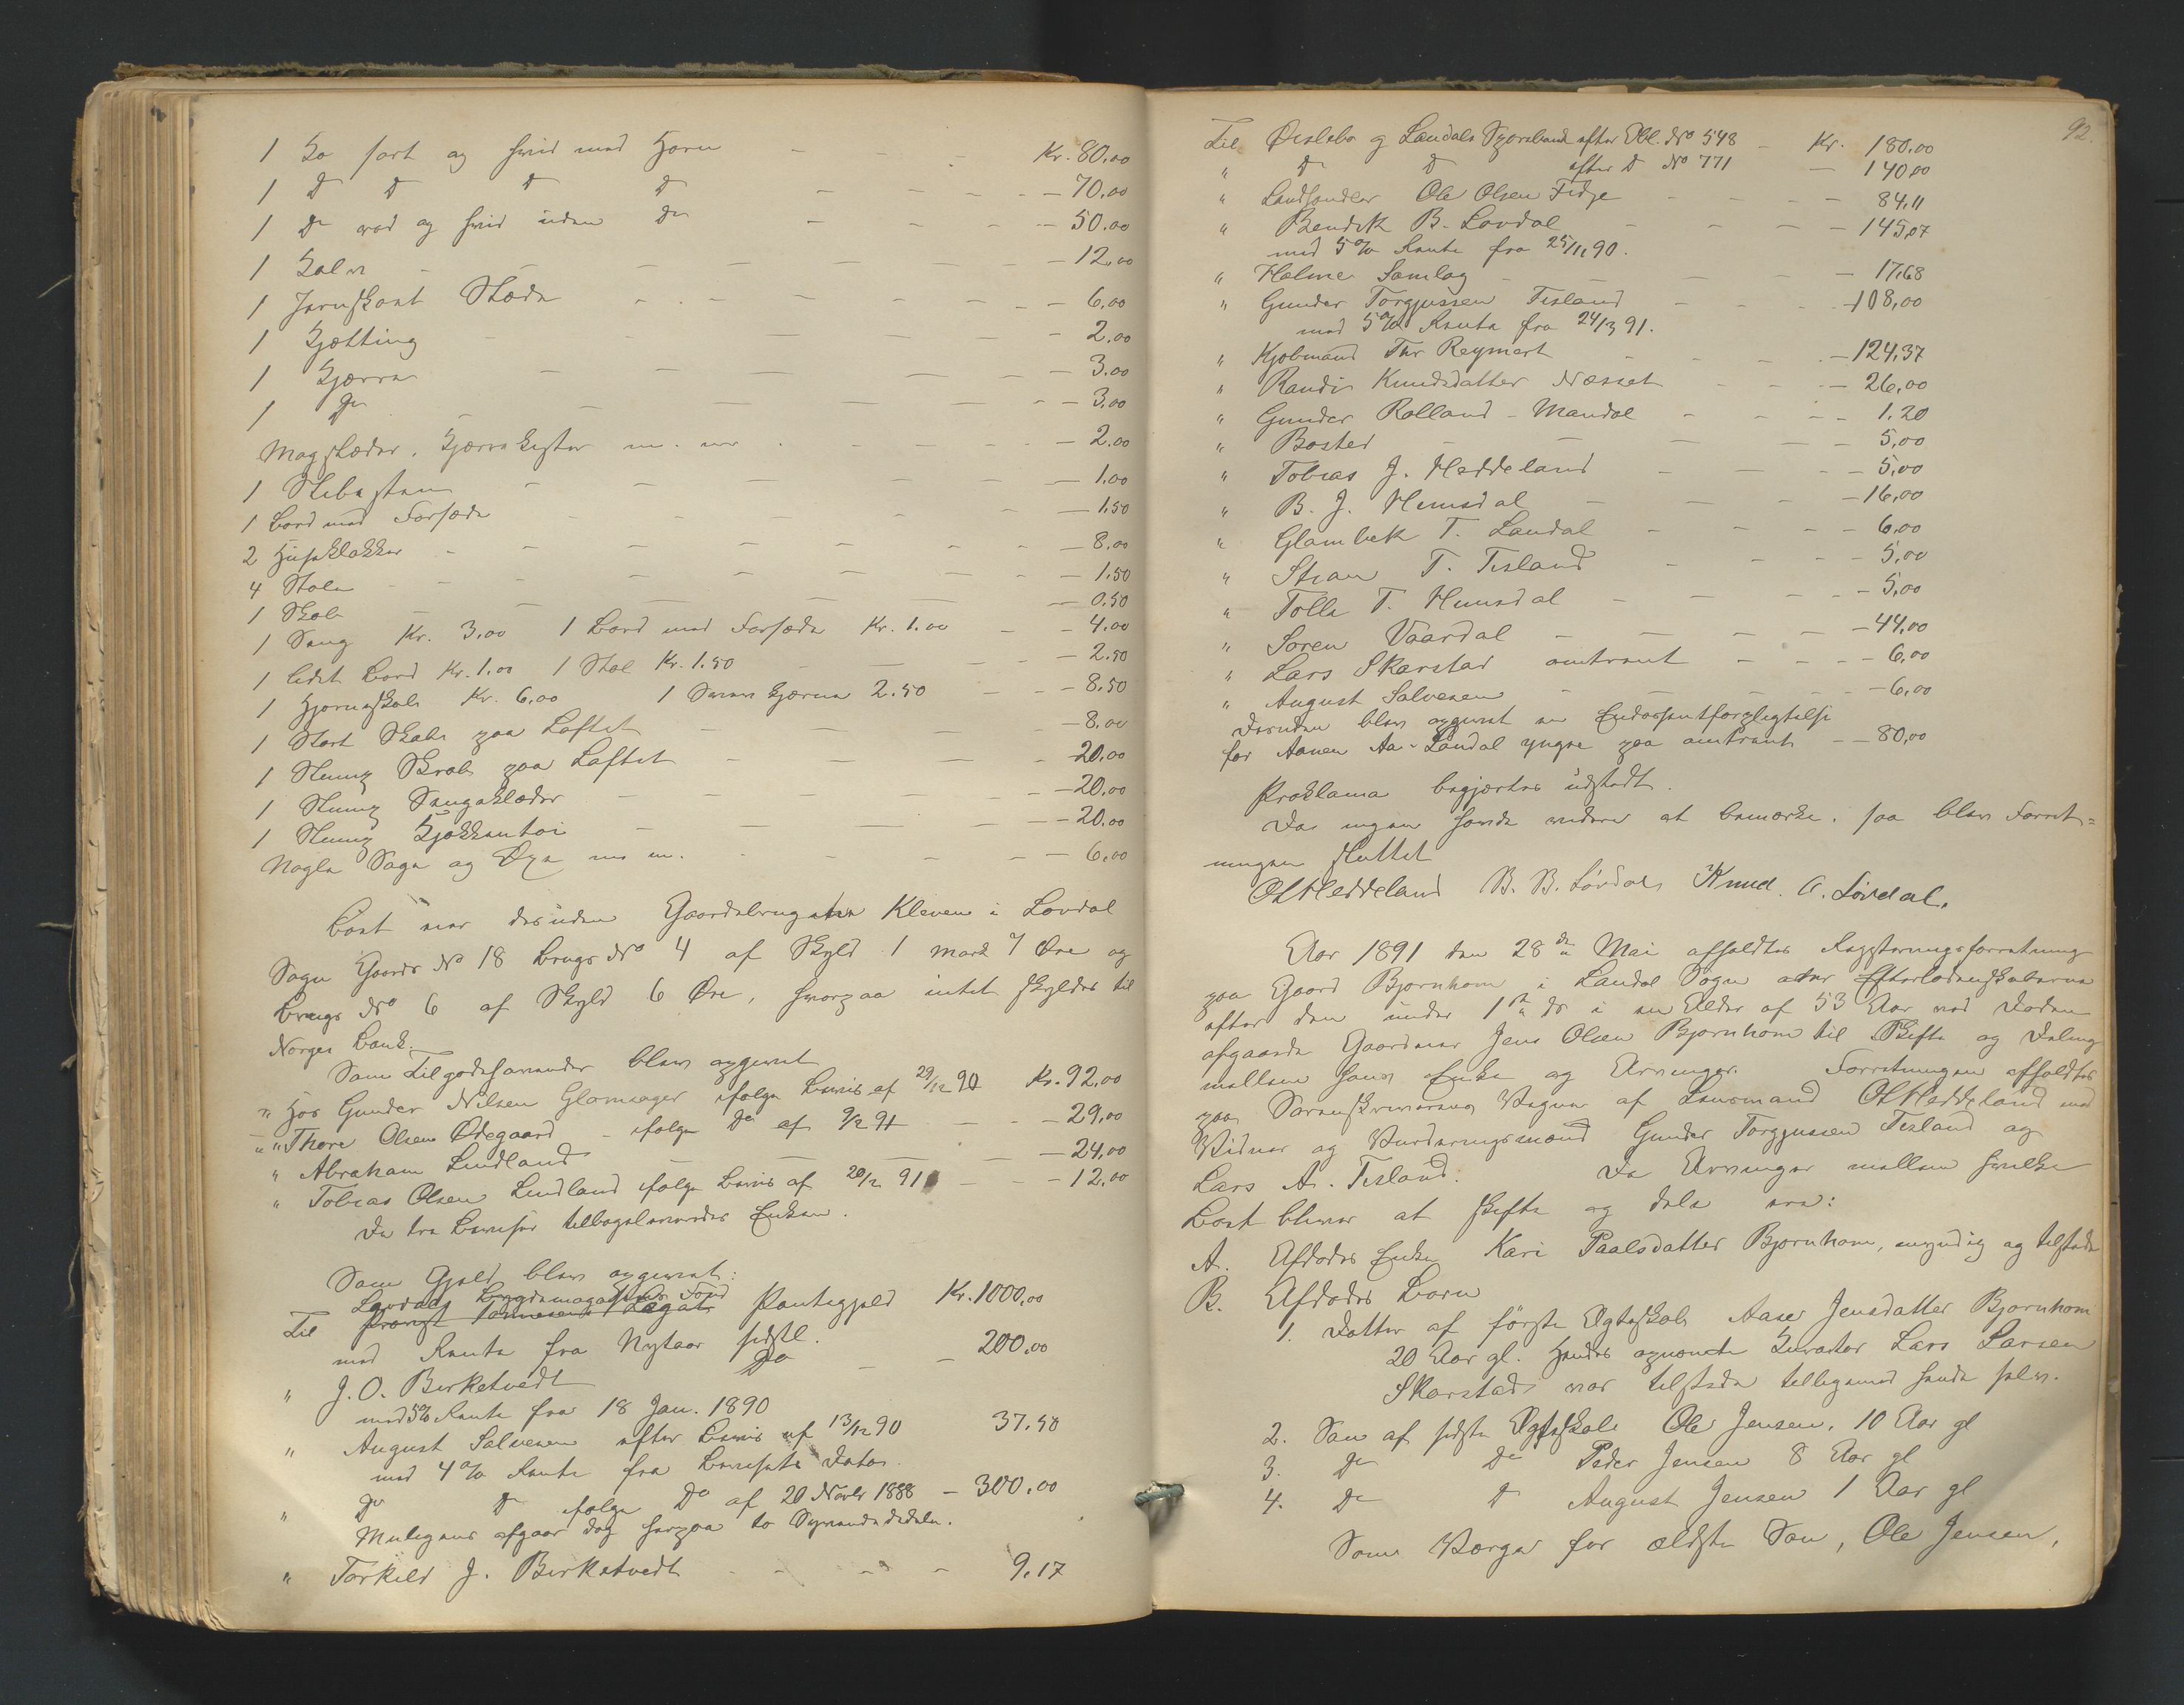 1 Ko sort og hvid med Horn - - - Kr. 80.00
1 Do Do Do Do - - - 70.00
1 Do rød og hvid uden Do - - - 50.00
1 Kalv - - - 12.00
1 Jernskoet Slæde - - - 6.00
1 Kjætting - - - 2.00
1 Kjærre - - - 3.00
1 Do - - - 3.00
Møgslæder, Kjærrekister m. m. - - - 2.00
1 Slibesten - - - 1.00
1 Bord med Forsæde - - - 1.50
2 Huseklokker - - - 8.00
4 Stole - - - 1.50
1 Skab - - - 0.50
1 Seng Kr. 3.00 1 Bord med Forsæde Kr. 1.00 - - 4.00
1 lidet Bord Kr. 1.00 1 Stol Kr. 1.50 - - 2.50
1 Hjørneskab Kr. 6.00 1 Kjærne 2.50 - - 8.50
1 Stort Skab paa Loftet - - - 8.00
1 Slump Skrab paa Loftet - - - 20.00
1 Slump Sengeklæder - - - 20.00
1 Slump Kjøkkentøi - - - 20.00
Nogle Sage og Øxe m. m. - - - 6.00
Boet eier desuden Gaardsbruget Kleven i Løvdal
Sogn Gaards No 18 Brugs No 4 af Skyld 1 Mark 7 Øre og
Brugs No 6 af Skyld 6 Øre, hvorpaa intet skyldes til
Norges Bank.
Som Tilgodehavender blev opgivet
" Hos Gunder Nilsen Glomsager ifølge Bevis af 29/12 90 Kr. 92.00
" " Thore Olsen Ødegaard - ifølge Do af 9/2 91 - - 29.00
" Abraham Lindland - - - 24.00
" Tobias Olsen Lindland ifølge Bevis af 20/2 91 - - 12.00
De tre Beviser tilbageleveredes Enken.
Som Gjæld blev opgivet:
Løvdals Bygdemagasins Fond
Til Provst Tønnesens Legats Pantegjæld Kr. 1000,00
med Rente fra Nytaar sidstl.
" J. O. Birketvedt Do - - 200,00
med 5% Rente fra 18 Jan. 1890
" August Salvesen efter Bevis af 13/12 90 37.50
med 4% Rente fra Bevisets Dato.
" Do Do ifølge Do af 20 Novbr 1888 - 300.00
Muligens afgaar dog herpaa to
" Torkild J. Birketvedt - - - 9.17
92.
Til Øislebø og Laudals Sparebank efter Obl. No 548 - Kr. 180.00
" Do Do efter Do No 771 - 140.00
" Landhandler Ole Olsen Fidje - - - 84.11
" Bendik B. Løvdal - - - 145.07
med 5% Rente fra 25/11 90.
" Holme Samlag - - - 17.68
" Gunder Torgjussen Tisland - - - 108,00
med 5% Rente fra 24/3 91.
" Kjøbmand Thv Reymert - - - 124,37
" Randi Knudsdatter Næsset - - - 26,00
" Gunder Rolland - Mandal - - - 1.20
" Bøsted - - - 5,00
" Tobias J. Heddeland - - - 5,00
" B. J. Hunsdal - - - 16,00
" Glambek T. Laudal - - - 6.00
" Stean T. Tisland - - - 5.00
" Tolle T. Hunsdal - - - 5,00
" Søren Vaardal - - - 44,00
" Lars Skarstad omtrent - - - 6,00
" August Salvesen - - - 6,00
Desuden blev opgivet en Endossentforpligtelse
for Aanen Aa. Laudal yngre paa omtrent - - 80,00
Proklama begjærtes udstedt.
Da ingen havde videre at bemærke, saa blev Forret=
ningen sluttet
OHeddeland B. B. Løvdal Knud. A. Løvdal.
Aar 1891 den 28de Mai afholdtes Registreringsforretning
paa Gaard Bjørnhom i Laudal Sogn over Efterladenskaberne
efter den under 1ste ds i en Alder af 53 Aar ved Døden
afgaaede Gaardmand Jens Olsen Bjørnhom til Skifte og Deling
mellem hans Enke og Arvinger. Forretningen afholdtes
paa Sorenskriverens Vegne af Lensmand OHeddeland med
Vidner og Vurderingsmænd Gunder Torgjussen Tisland og
Lars A. Tisland. De Arvinger mellem hvilke
Boet bliver at skifte og dele ere:
A. Afdødes Enke Kari Paalsdatter Bjørnhom, myndig og tilstede
B. Afdødes Børn
1. Datter af første Ægteskab Aase Jensdatter Bjørnhom
20 Aar gl. Hendes opnævnte Kurator Lars Larsen
Skarstad var tilstede tilligemed hende selv.
2. Søn af sidste Ægteskab Ole Jensen, 10 Aar gl
3. Do Do Peder Jensen 8 Aar gl
4. Do Do August Jensen 1 Aar gl
Som Værge for ældste Søn, Ole Jensen,